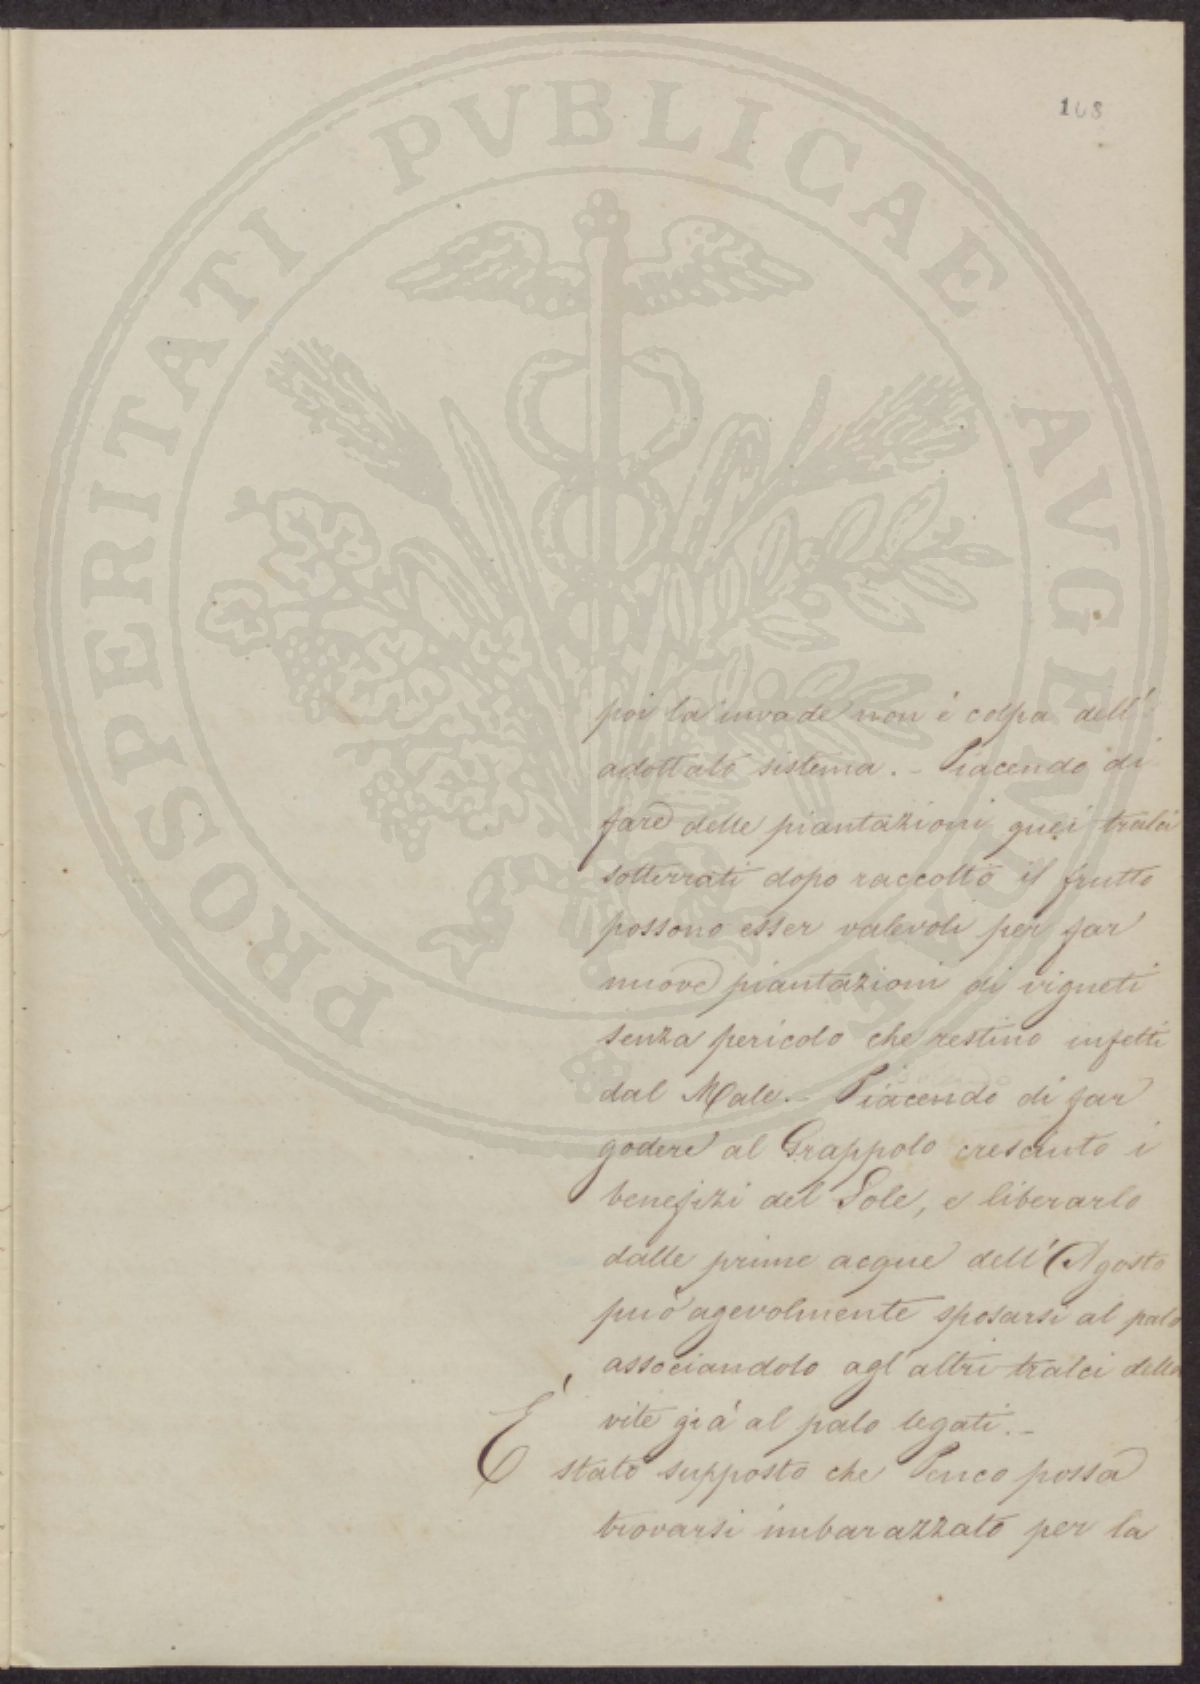 168
PROSPERITATI PVBLICAE AVGENDAE
poi la invade non è colpa dell'
adottato sistema. - Piacendo di
fare delle piantazioni quei tralci
sotterrati dopo raccolto il frutto
possono esser valevoli per far
nuove piantazioni di vigneti
senza pericolo che restino infetti
dal Male. - Piacendo di far
godere al Grappolo cresciuto i
benefizi del Sole, e liberarlo
dalle prime acque dell'Agosto
può agevolmente sposarsi al palo
associandolo agl'altri tralci della
vite già al palo legati. -
È stato supposto che Penco possa
trovarsi imbarazzato per la